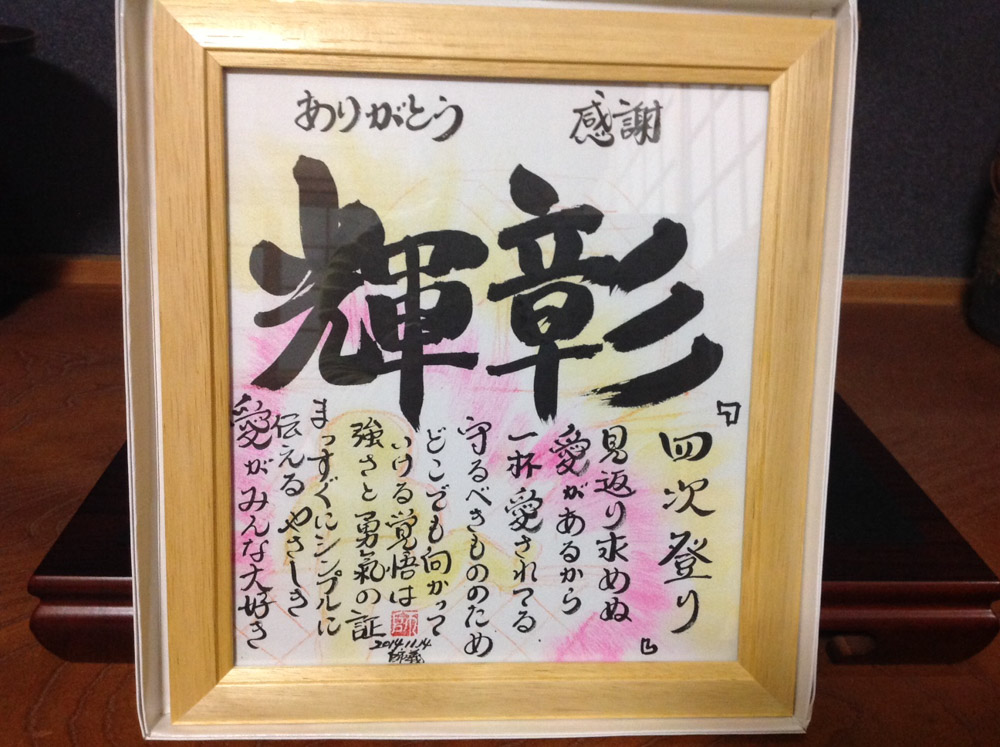 感謝
ありがとう
彰輝
「四次登り」
見返り求めぬ
愛があるから
一杯愛されてる
守るべきもののため
どこでも向かって
いける覚悟は
強さと勇氣の証
まっすぐにシンプルに
伝えるやさしき
愛がみんな大好き
2014.11.14